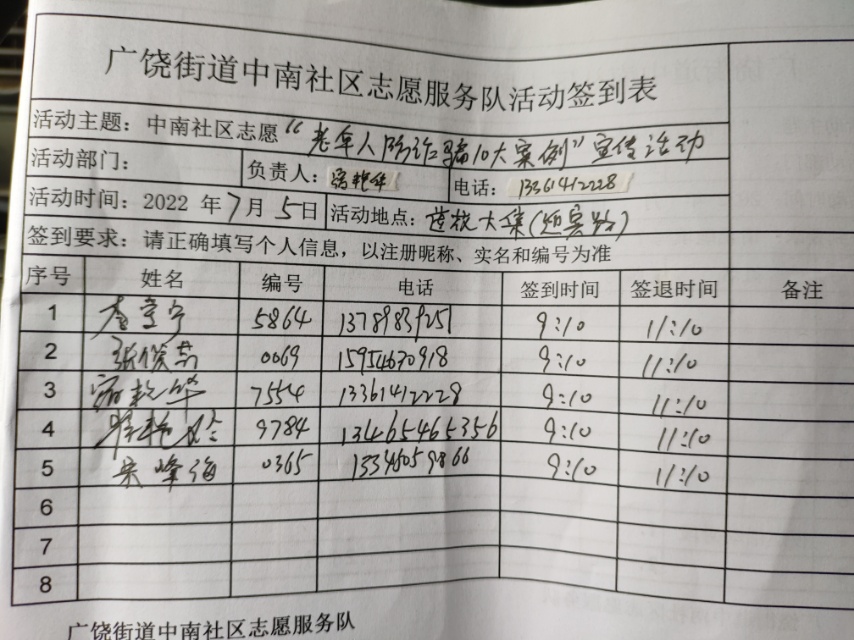 广饶街道中南社区志愿服务队活动签到表
活动主题：中南社区志愿“老年人防诈骗10大案例”宣传活动
活动部门： 负责人： 艳华 电话：13361412228
活动时间：2022 年7月5日 活动地点：道校大集(
签到要求：请正确填写个人信息，以注册昵称、实名和编号为准
序号 姓名 编号 电话 签到时间 签退时间 备注
1 李雪宁 5864 13789839251 9:10 11:10
2 张俊茹 0069 15954630918 9:10 11:10
3 艳华 7554 13361412228 9:10 11:10
4 艳玲 9784 13465465356 9:10 11:10
5 宋峰海 0365 9:10 11:10
6
7
8
广饶街道中南社区志愿服务队